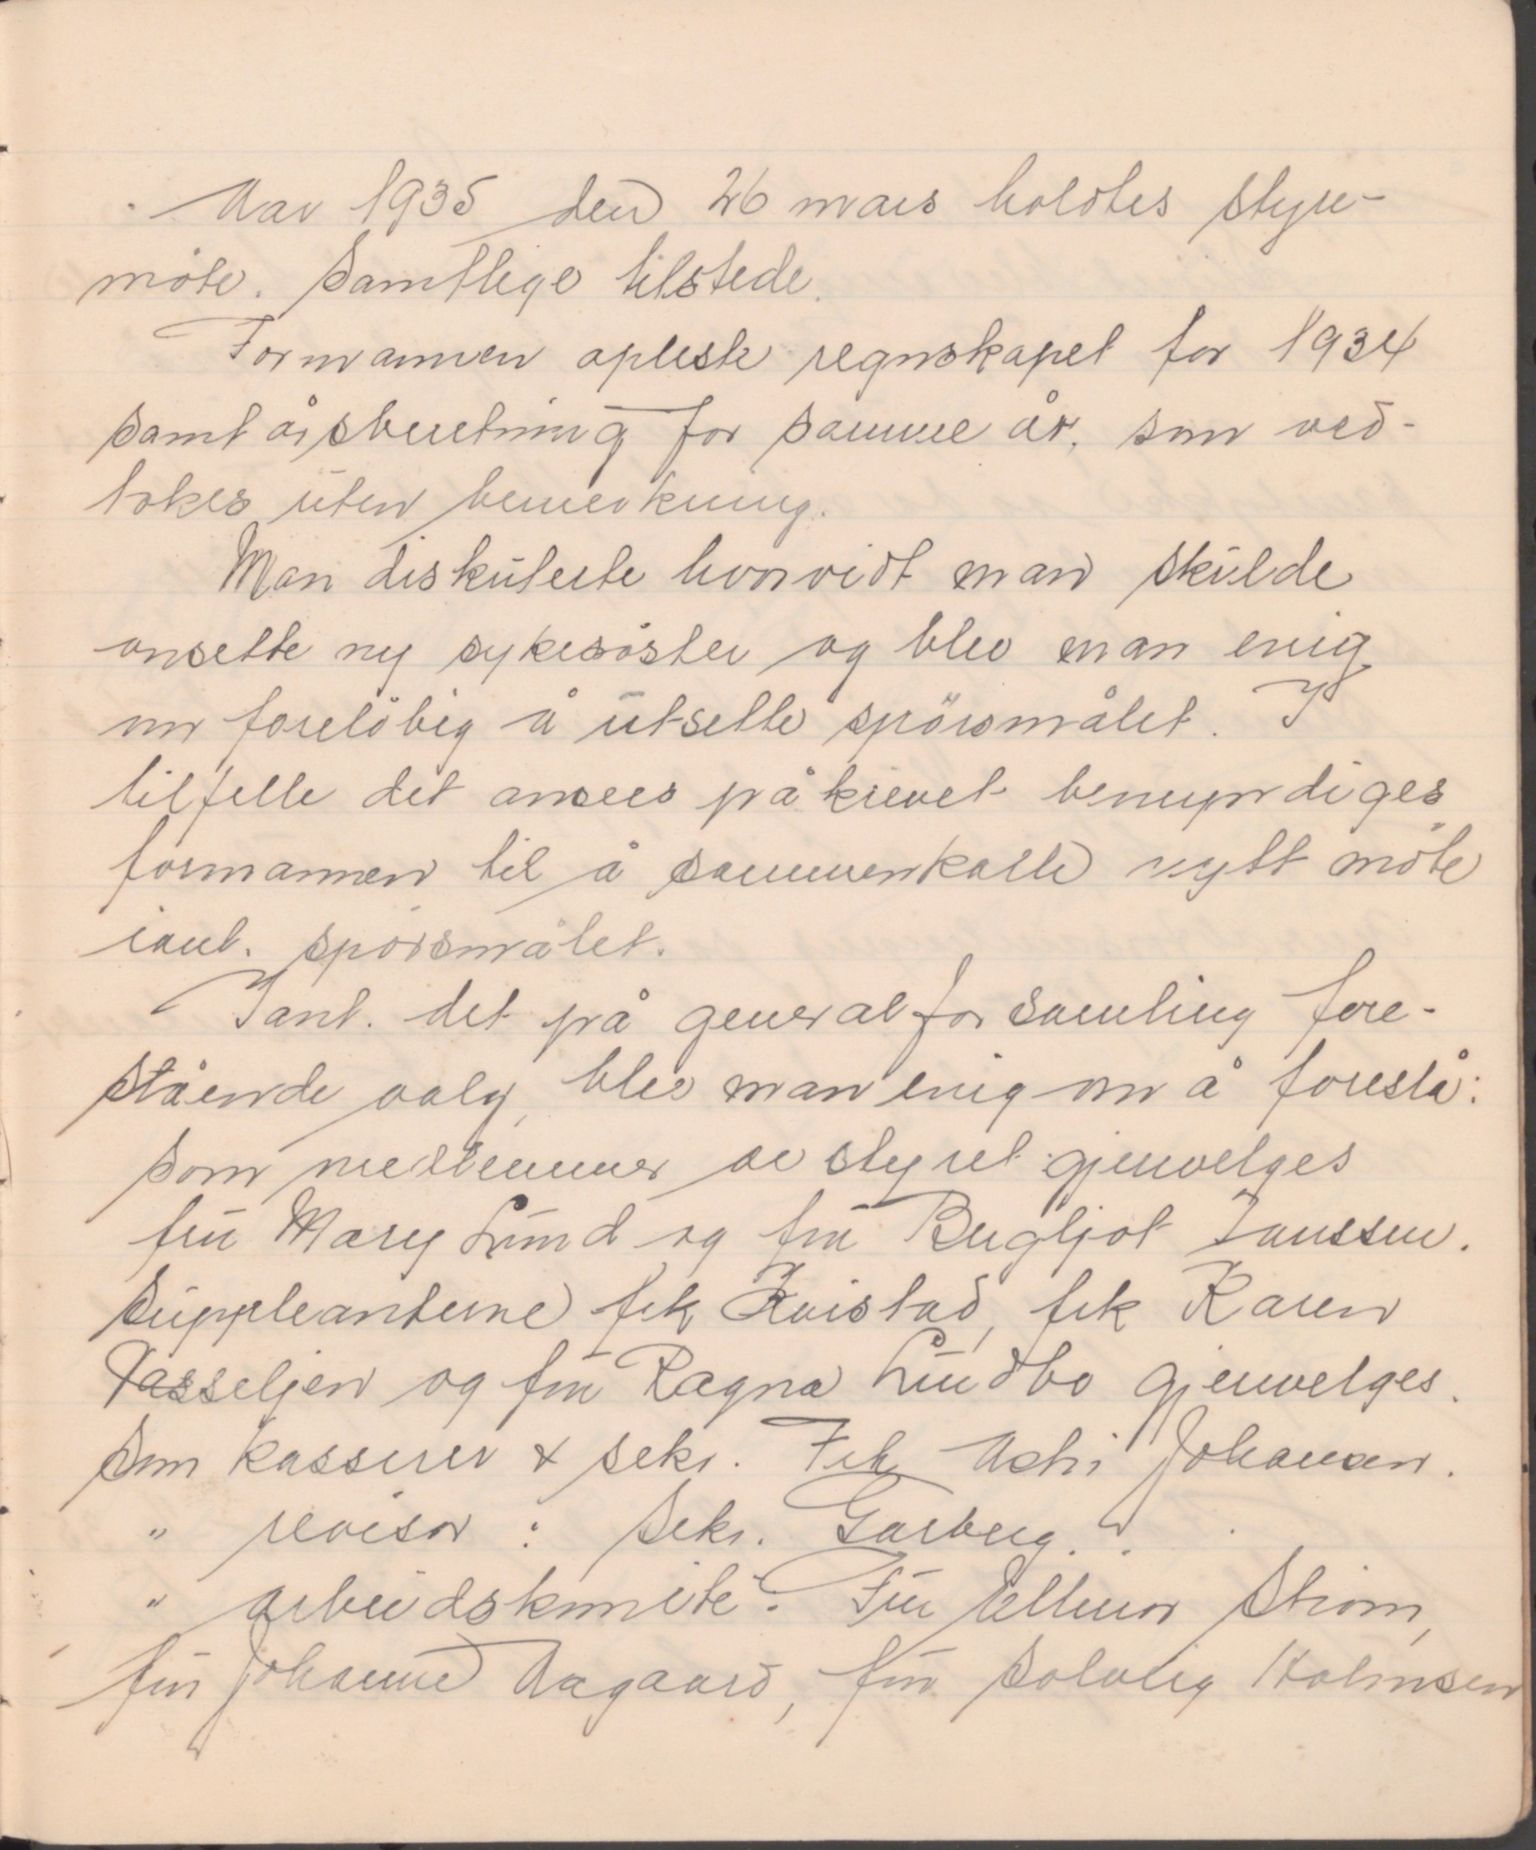 Aar 1935 den 26 mars holdtes styre-
möte. Samtlige tilstede.
Formannen opleste regnskapet for 1934
samt årsberetning for samme år, som ved-
tokes uten bemerkning.
Man diskuterte hvorvidt man skulde
ansette ny sykesöster og blev man enig
om forelöbig å utsette spörsmålet. I
tilfelle det ansees påkrevet bemyndiges
formannen til å sammenkalle nytt möte
iant. spörsmålet.
Iant. det på generalforsamling fore-
stående valg, blev man enig om å foreslå:
Som medlemmer av styret gjenvelges
fru Mary Lund og fru Bergljot Janssen.
Suppleanterne frk. Kvistad, frk Karen
Vasseljen og fru Ragna Lundbo gjenvelges.
Som kasserer & sekr. Frk Johansen.
" revisor : Sekr. Garberg.
" arbeidskomite: Fru Ellinor Ström,
fru Johanne Aagaard, fru Solveig Holmsen